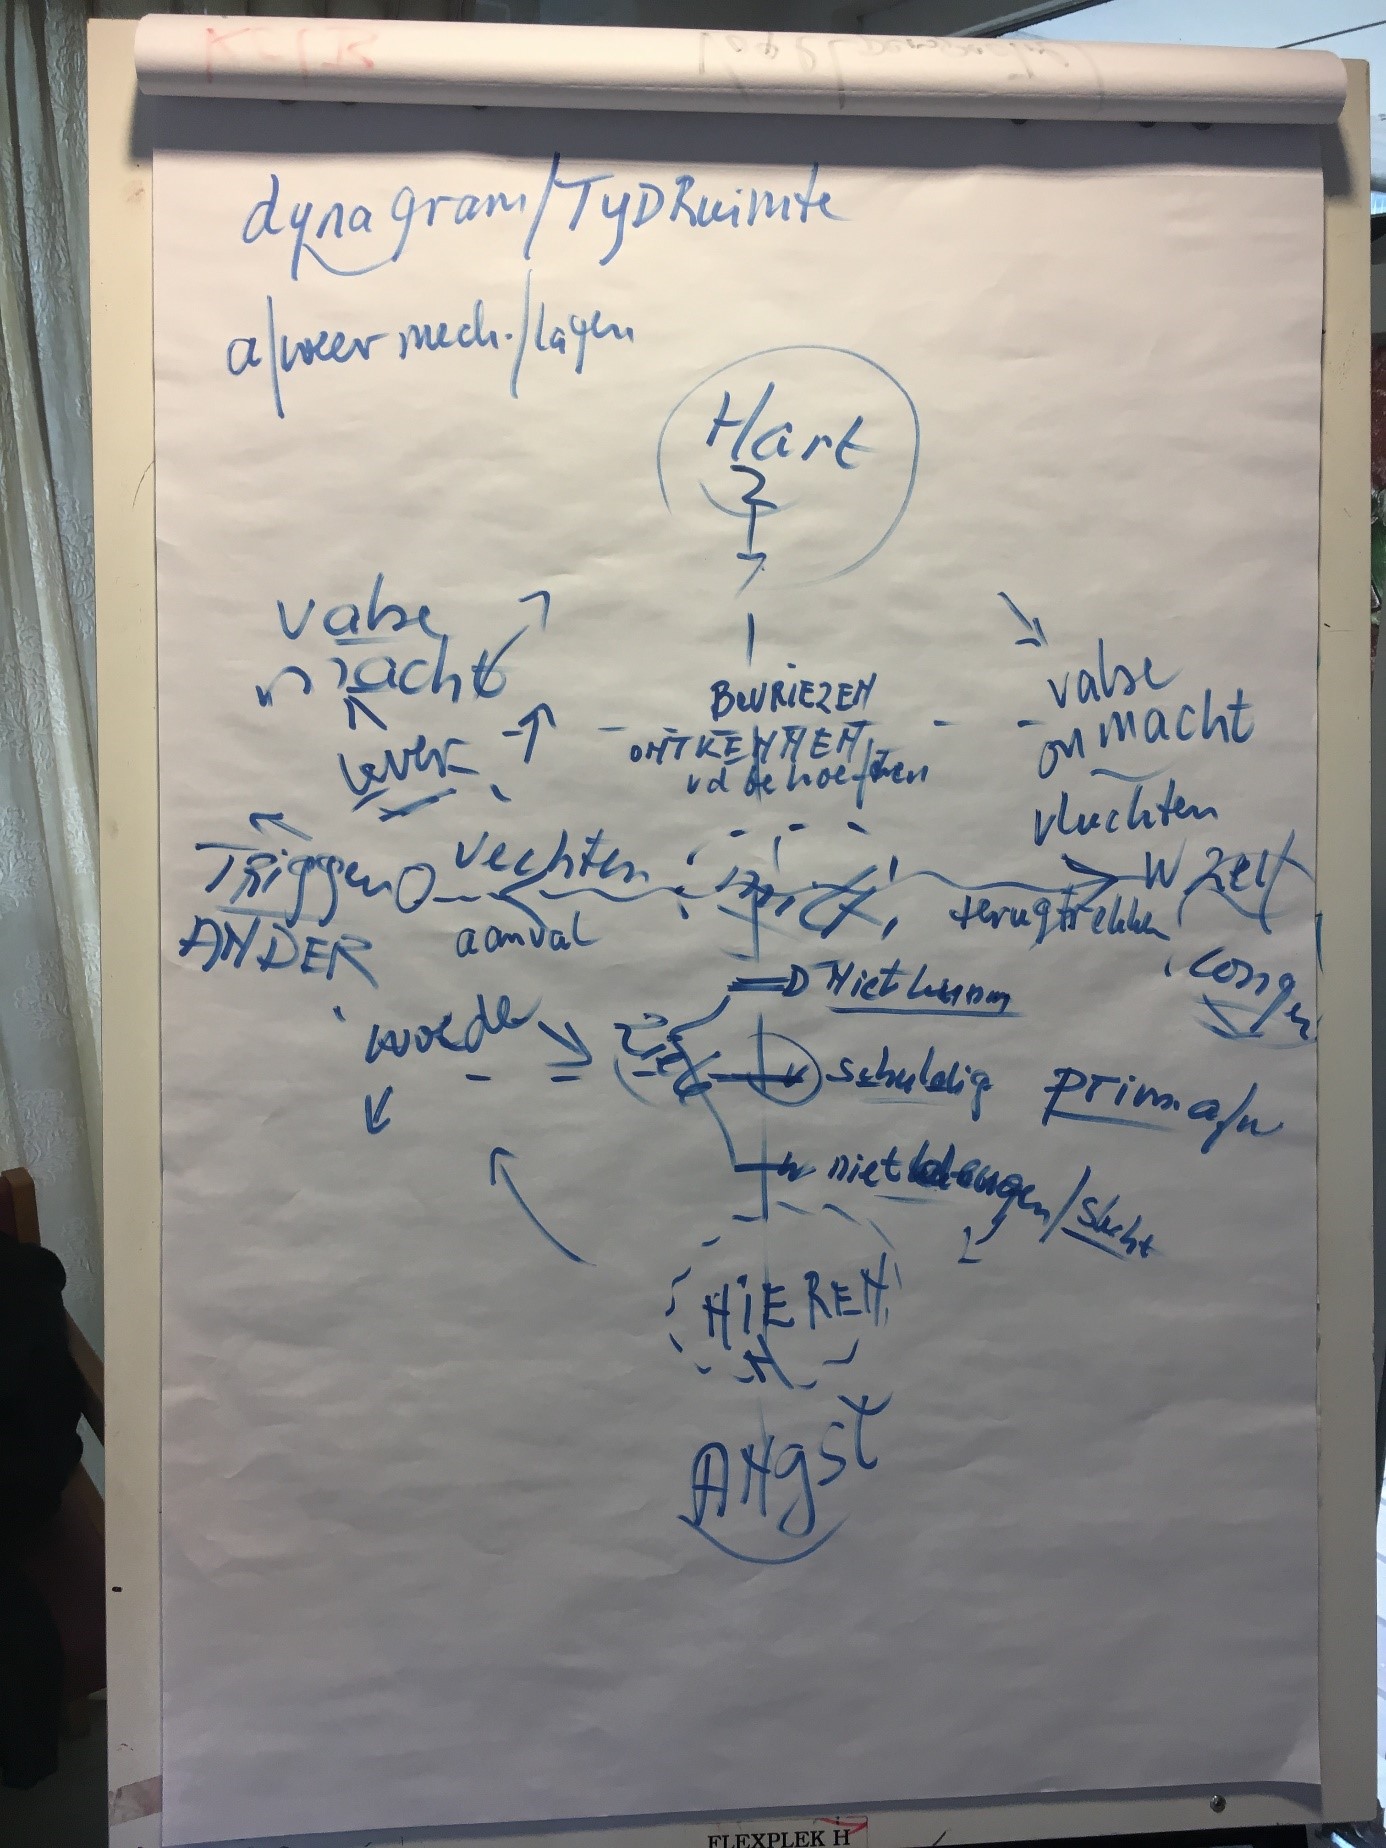 dynagram/TyDRuimte
a/weer mech./lagen
Hart
valse
macht
lever
BEVRIEZEN
ONTKENNEN
vd behoeften
valse
onmacht
vluchten
TRiggen
ANDER
vechten
aanval
terugtrekke
Zelf
longen
Niet kunnen
woede
Ziel
schuldig
prima/n
niet deugen/slecht
NIEREN
ANgST
FLEXPLEK H